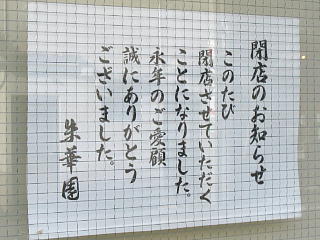 閉店のお知らせ
このたび
閉店させていただく
ことになりました。
永年のご愛顧
誠にありがとう
ございました。
朱華園